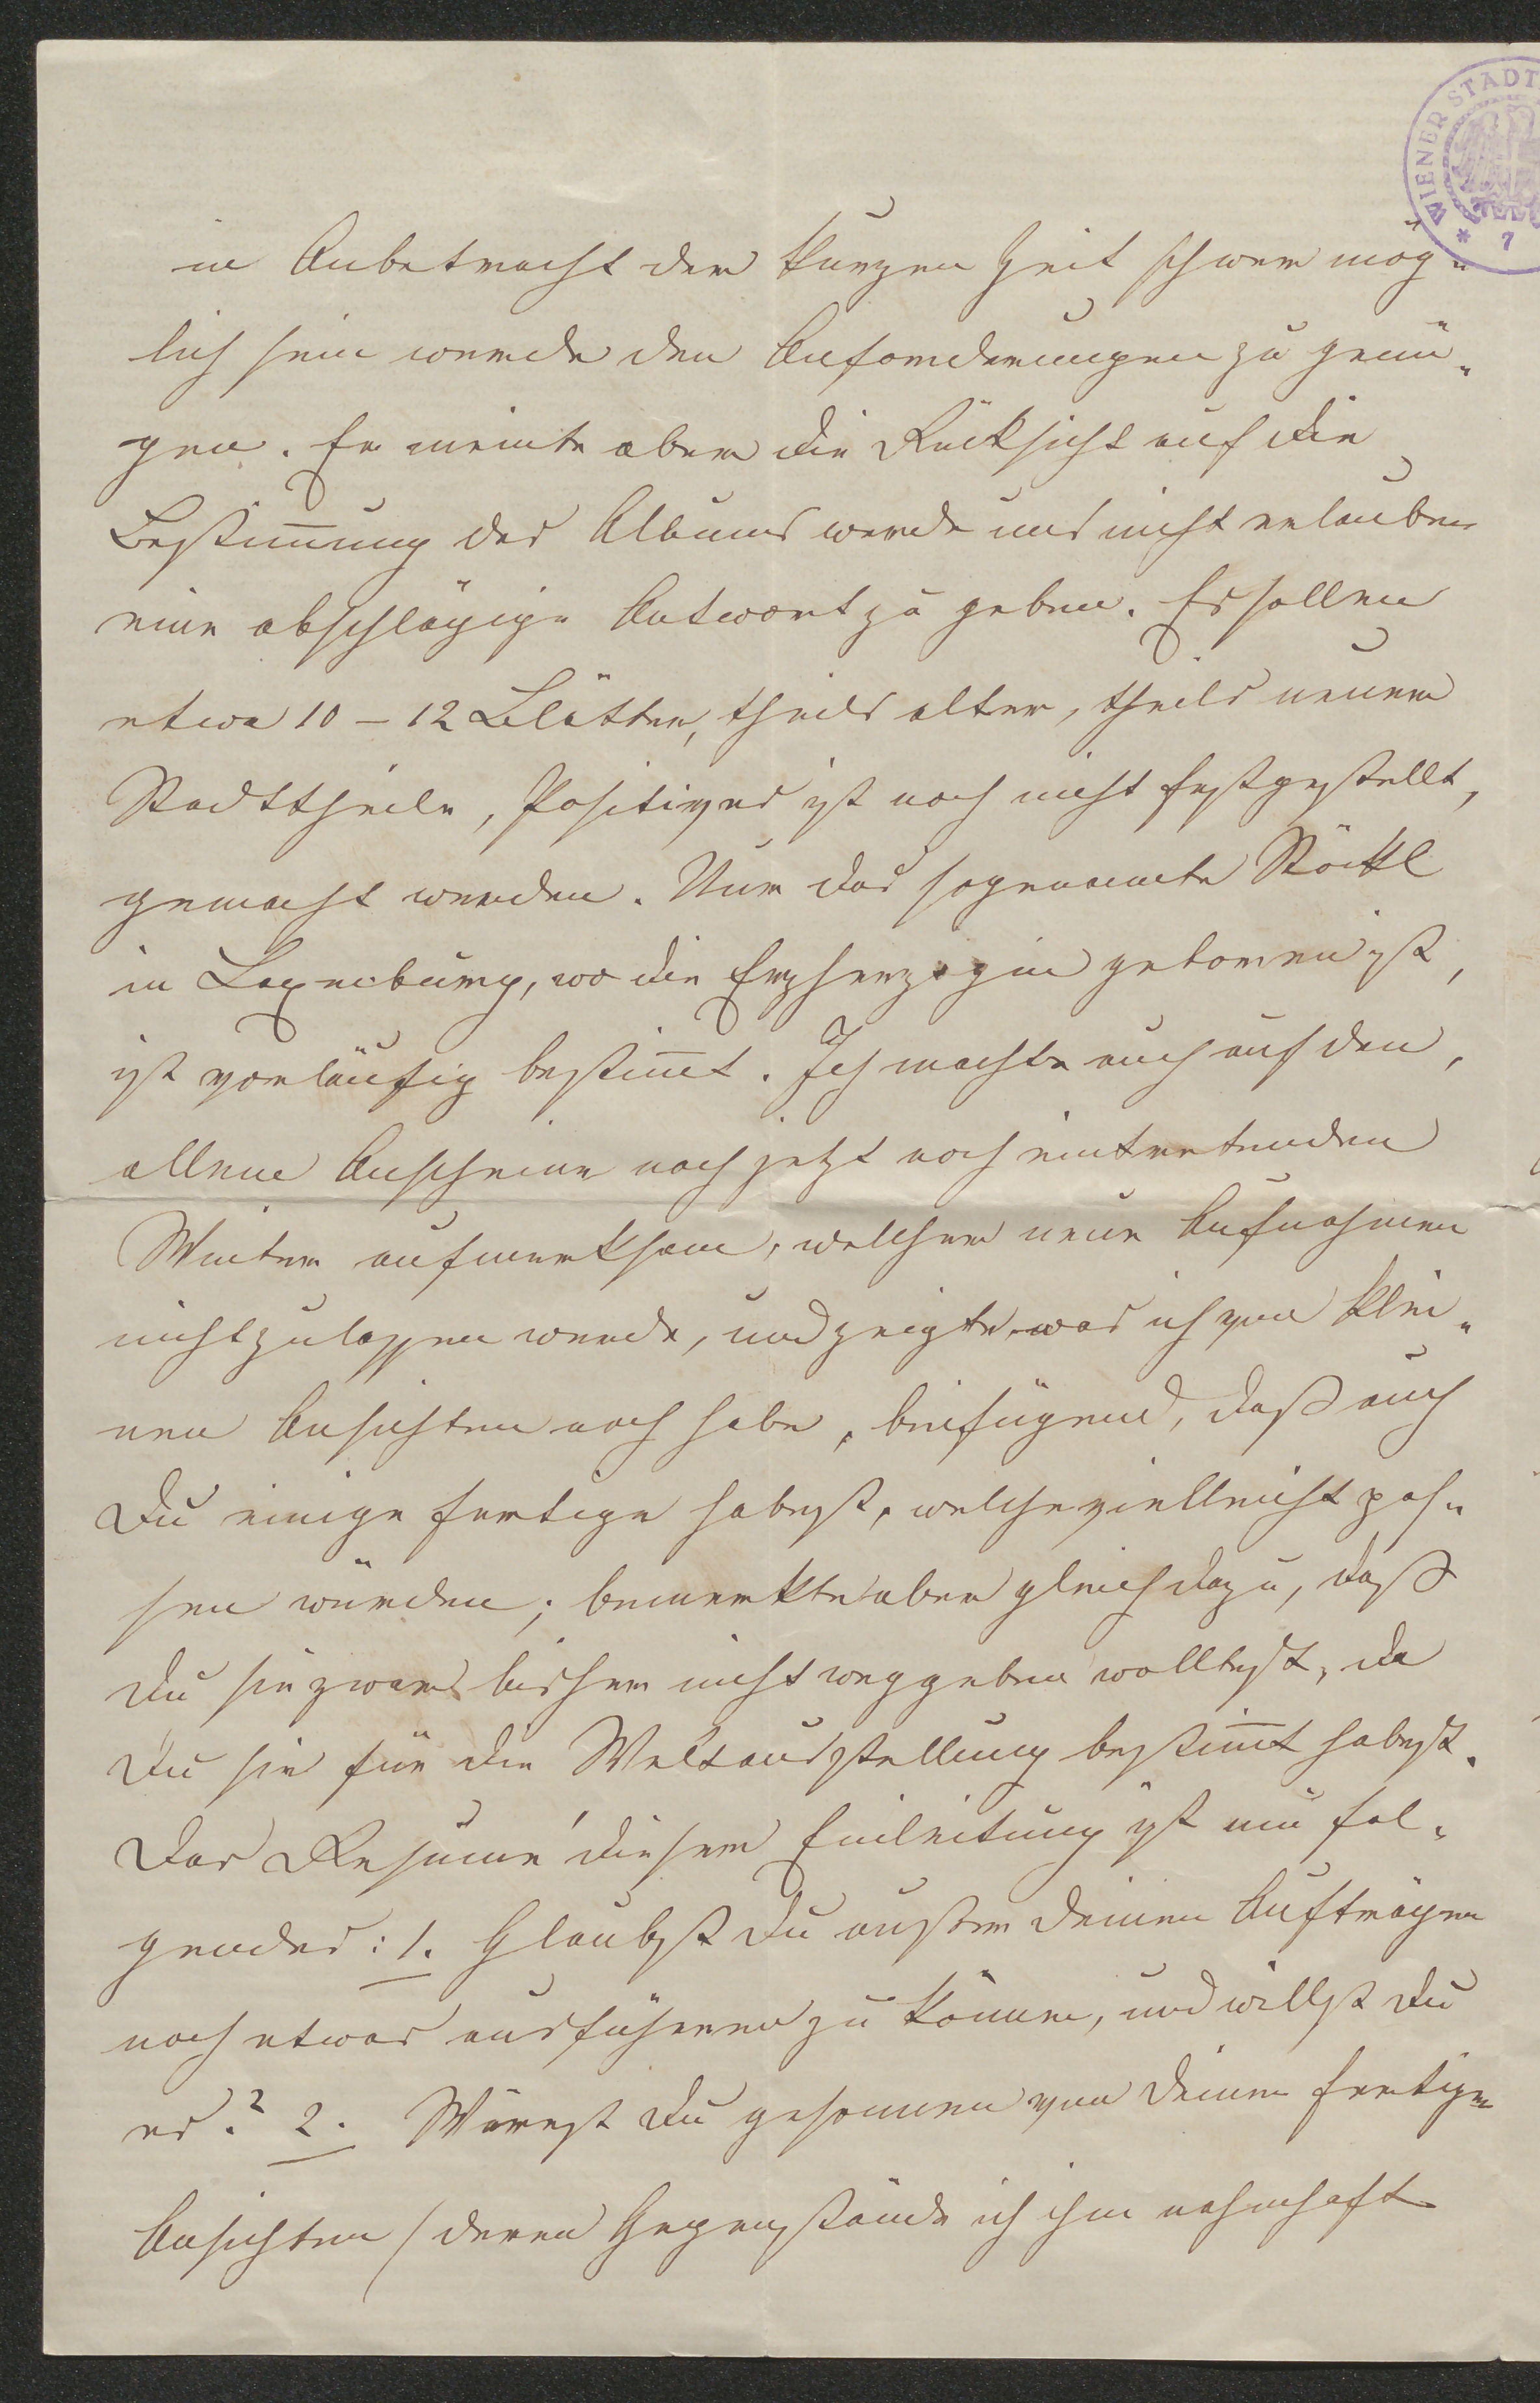 WIENER STADT
* 7
in Anbetracht der kurzen Zeit schwer mög-
lich sein werde den Anforderungen zu genü-
gen. Er meinte aber die Rücksicht auf die
Bestim̄ung des Albums werde uns nicht erlauben
eine abschlägige Antwort zu geben. Es sollen
etwa 10 – 12 Blätter, theils alter, theils neuer
Stadttheile, Positives ist noch nicht festgestellt,
gemacht werden. Nur das sogenannte Stöckl
in Laxenburg, wo die Erzherzogin geboren ist,
ist vorläufig bestim̄t. Ich machte auch auf den,
allem Anscheine nach jetzt noch eintretenden
Winter aufmerksam, welcher neue Aufnahmen
nicht zulassen werde, und zeigte was ich von klei-
nen Ansichten noch habe, beifügend, daß auch
Du einige fertige habest, welche vielleicht pas-
sen würden; bemerkte aber gleich dazu, daß
Du sie zwar bisher nicht weggeben wolltest, da
Du sie für die Weltausstellung bestim̄t habest.
Das Resumé dieser Einleitung ist nun fol-
gendes: 1. Glaubst Du außer Deinen Aufträgen
noch etwas ausführen zu können, und willst Du
es? 2. Wärest Du gesonnen von Deinen fertigen
Ansichten (deren Gegenstände ich ihm nahmhaft